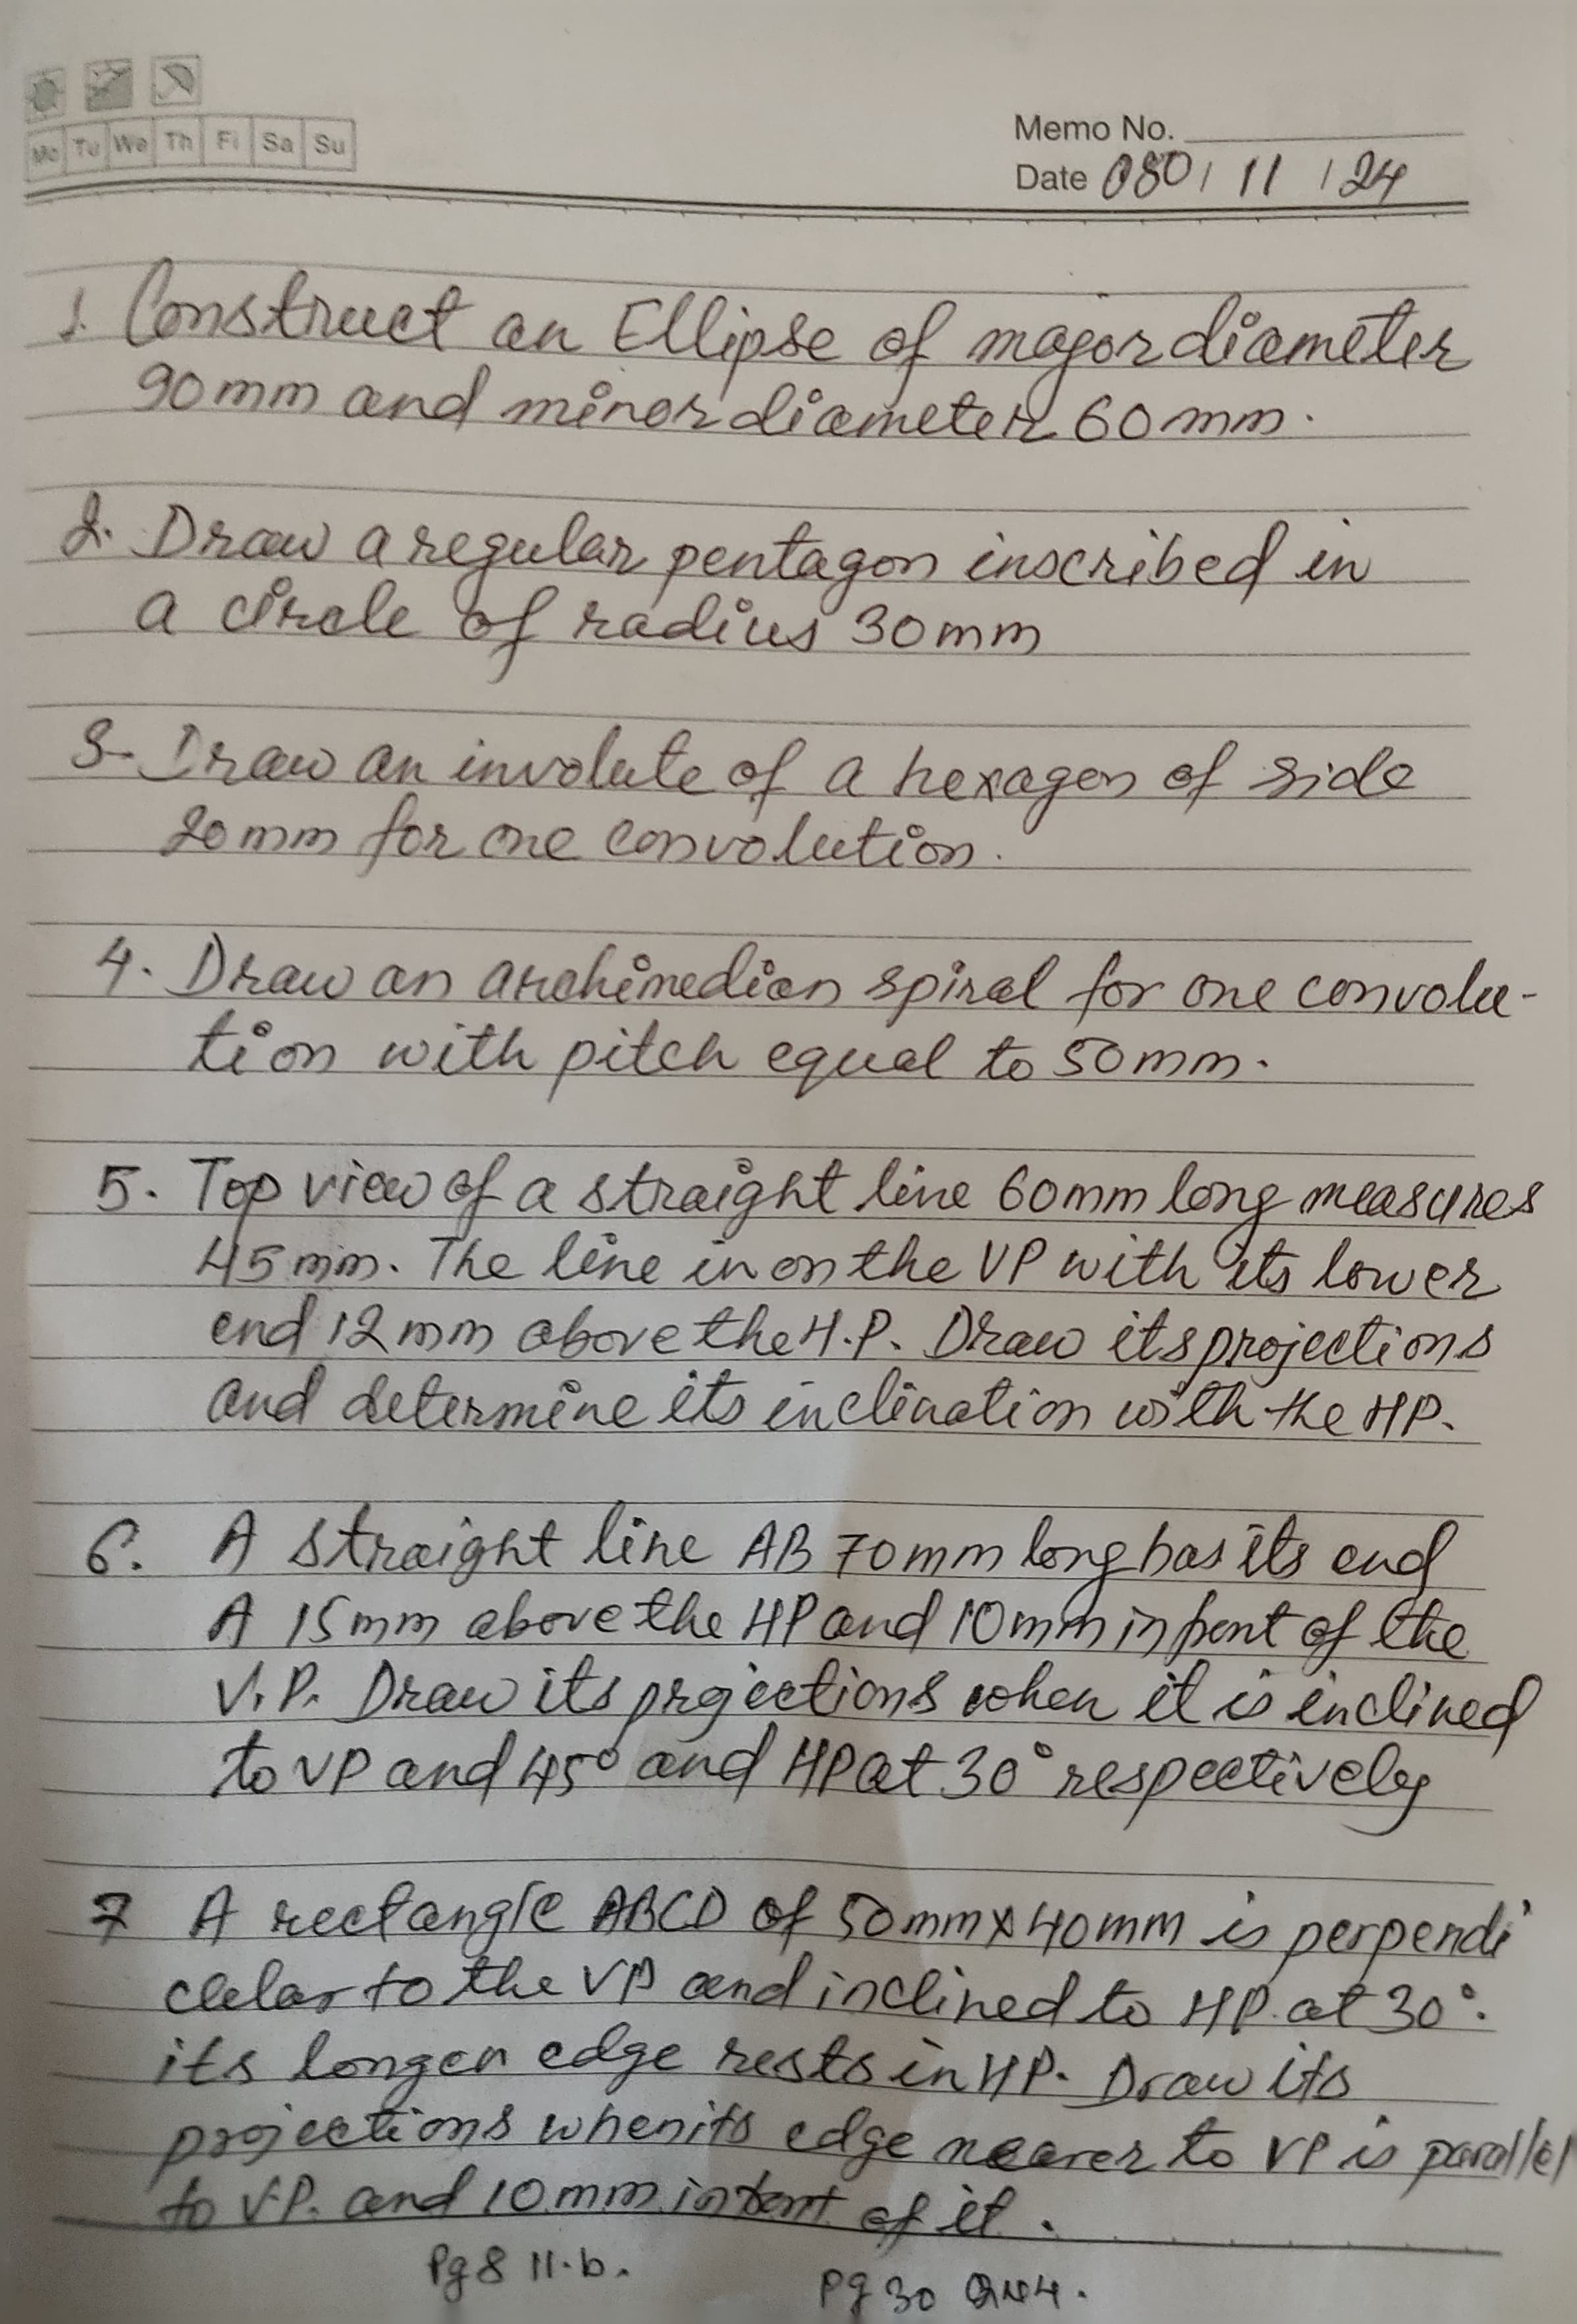 Mo Tu We Th Fi Sa Su
Memo No.
Date 080 / 11 / 24
1. Construct an Ellipse of major diameter
90mm and minor diameter 60mm.
2. Draw a regular pentagon inscribed in
a circle of radius 30mm
3- Draw an involute of a hexagon of side
20mm for one convolution.
4. Draw an archimedian spiral for one convolu-
tion with pitch equal to 50mm.
5. Top view of a straight line 60mm long measures
45mm. The line in on the VP with its lower
end 12mm above the H.P. Draw its projections
and determine its inclination with the HP.
6. A straight line AB 70mm long has its end
A 15mm above the HP and 10mm in front of the
V.P. Draw its projections when it is inclined
to VP and 45° and HP at 30° respectively
7 A rectangle ABCD of 50mm x 40mm is perpendi
cular to the VP and inclined to HP at 30°.
its longer edge rests in HP. Draw its
projections when its edge nearer to VP is parallel
to V.P. and 10mm in front of it.
Pg 8 11.b.
Pg 30 4.